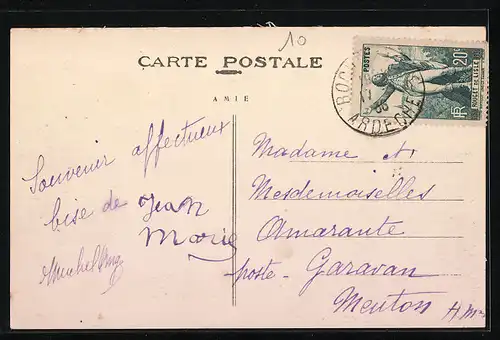 10
CARTE POSTALE
AMIE
POSTES
20c
ROUGET DE LISLE
RF
ARDECHE
Souvenir affectueux
bise de Jean
Marie
Madame et
Mesdemoiselles
Amarante
poste - Garavan
Menton